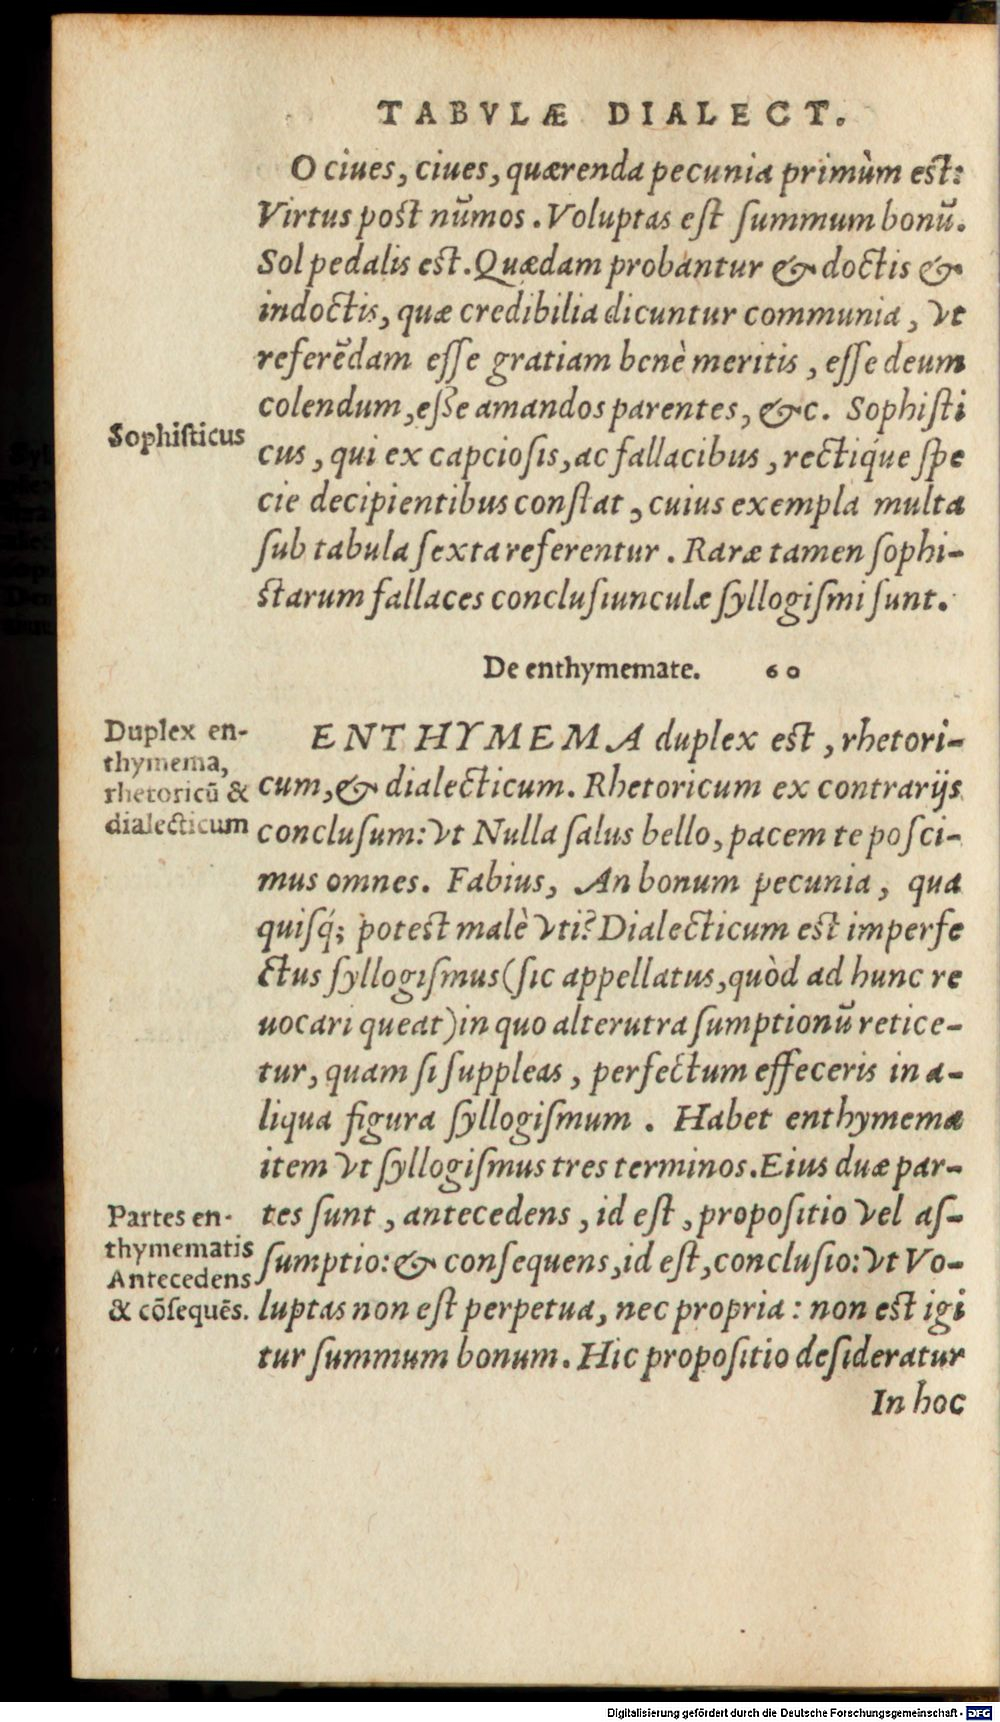 TABVLÆ DIALECT.
O ciues, ciues, quærenda pecunia primùm est:
Virtus post nũmos. Voluptas est summum bonũ.
Sol pedalis est. Quædam probantur & doctis &
indoctis, quæ credibilia dicuntur communia, vt
referẽdam esse gratiam benè meritis, esse deum
colendum, esse amandos parentes, &c. Sophisti
Sophisticus
cus, qui ex capciosis, ac fallacibus, rectíque spe
cie decipientibus constat, cuius exempla multa
sub tabula sexta referentur. Raræ tamen sophi-
starum fallaces conclusiunculæ syllogismi sunt.
De enthymemate. 60
Duplex en-
thymema,
rhetoricũ &
dialecticum
ENTHYMEMA duplex est, rhetori-
cum, & dialecticum. Rhetoricum ex contrarijs
conclusum: vt Nulla salus bello, pacem te posci-
mus omnes. Fabius, An bonum pecunia, qua
quisq́; potest malè vti? Dialecticum est imperfe
ctus syllogismus (sic appellatus, quòd ad hunc re
uocari queat) in quo alterutra sumptionũ retice-
tur, quam si suppleas, perfectum effeceris in a-
liqua figura syllogismum. Habet enthymema
item vt syllogismus tres terminos. Eius duæ par-
Partes en-
thymematis
Antecedens
& cõsequẽs.
tes sunt, antecedens, id est, propositio vel as-
sumptio: & consequens, id est, conclusio: vt Vo-
luptas non est perpetua, nec propria: non est igi
tur summum bonum. Hic propositio desideratur
In hoc
Digitalisierung gefördert durch die Deutsche Forschungsgemeinschaft - DFG